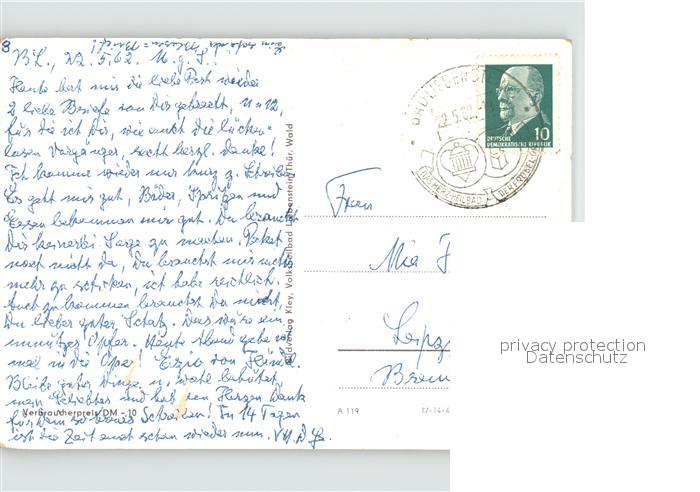 8
B.L., 22.5.62. M. g. S.!
Heute hat mir die liebe Post wieder
2 liebe Briefe von Dir gebracht, 11 u 12,
für die ich Dir, wie auch die lücken-
losen Vorgänger, recht herzl. danke!
Ich komme wieder nur kurz z. Schreiben.
Es geht mir gut, Bäder, Spritzen und
Essen bekommen mir gut. Du brauchst
Dir keinerlei Sorge zu machen. Paket
noch nicht da, Du brauchst mir nichts
mehr zu schicken, ich habe reichlich.
Auch zu kommen brauchst Du nicht,
Du lieber guter Schatz. Das wäre ein
unnützes Opfer. Heute Abend gehe ich
mal in die Oper! Ezio von Händel.
Bleibe guter Dinge u. wohl behütet,
mein Liebster und hab von Herzen Dank
für Dein so braves Schreiben! In 14 Tagen
ist die Zeit auch schon wieder um.
Verbraucherpreis DM -.10
Bildverlag Kley, Volksheilbad Liebenstein/Thür. Wald
22.5.62
HERZHEILBAD
10
DEUTSCHE
DEMOKRATISCHE REPUBLIK
Frau
Mia
Leipz
A 119
privacy protection
Datenschutz